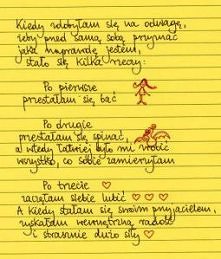 Kiedy zdobyłam się na odwagę,
żeby przed samą sobą przyznać
jaka naprawdę jestem,
stało się kilka rzeczy:
Po pierwsze
przestałam się bać
Po drugie
przestałam się spinać,
a wtedy łatwiej było mi zrobić
wszystko, co sobie zamierzyłam
Po trzecie
zaczęłam siebie lubić
A kiedy stałam się swoim przyjacielem,
zyskałam wewnętrzną radość
i strasznie dużo siły